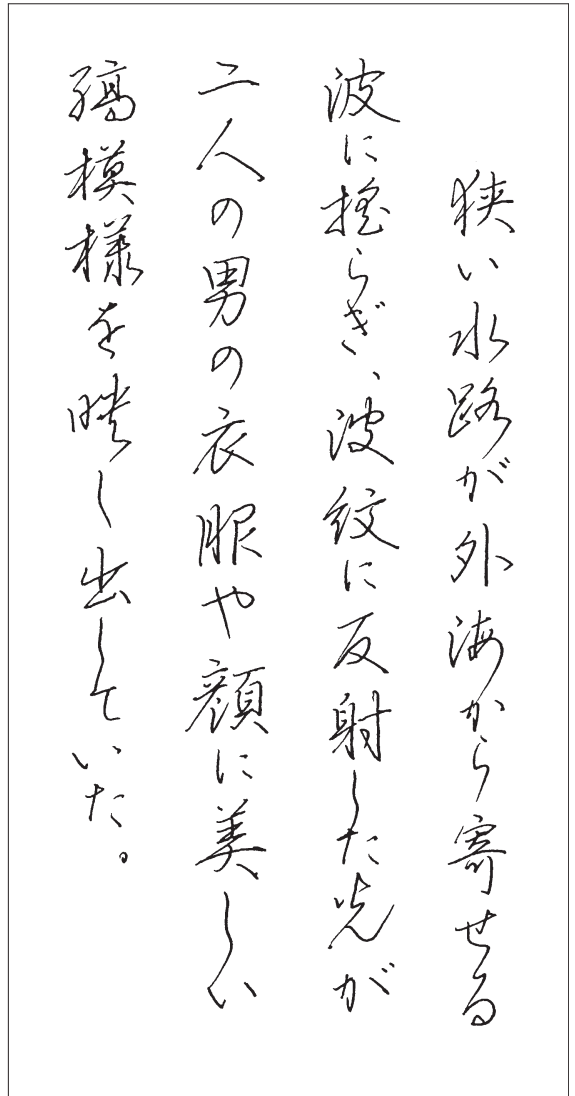 狭い水路が外海から寄せる
波に揺らぎ、波紋に反射した光が
二人の男の衣服や顔に美しい
縞模様を映し出していた。